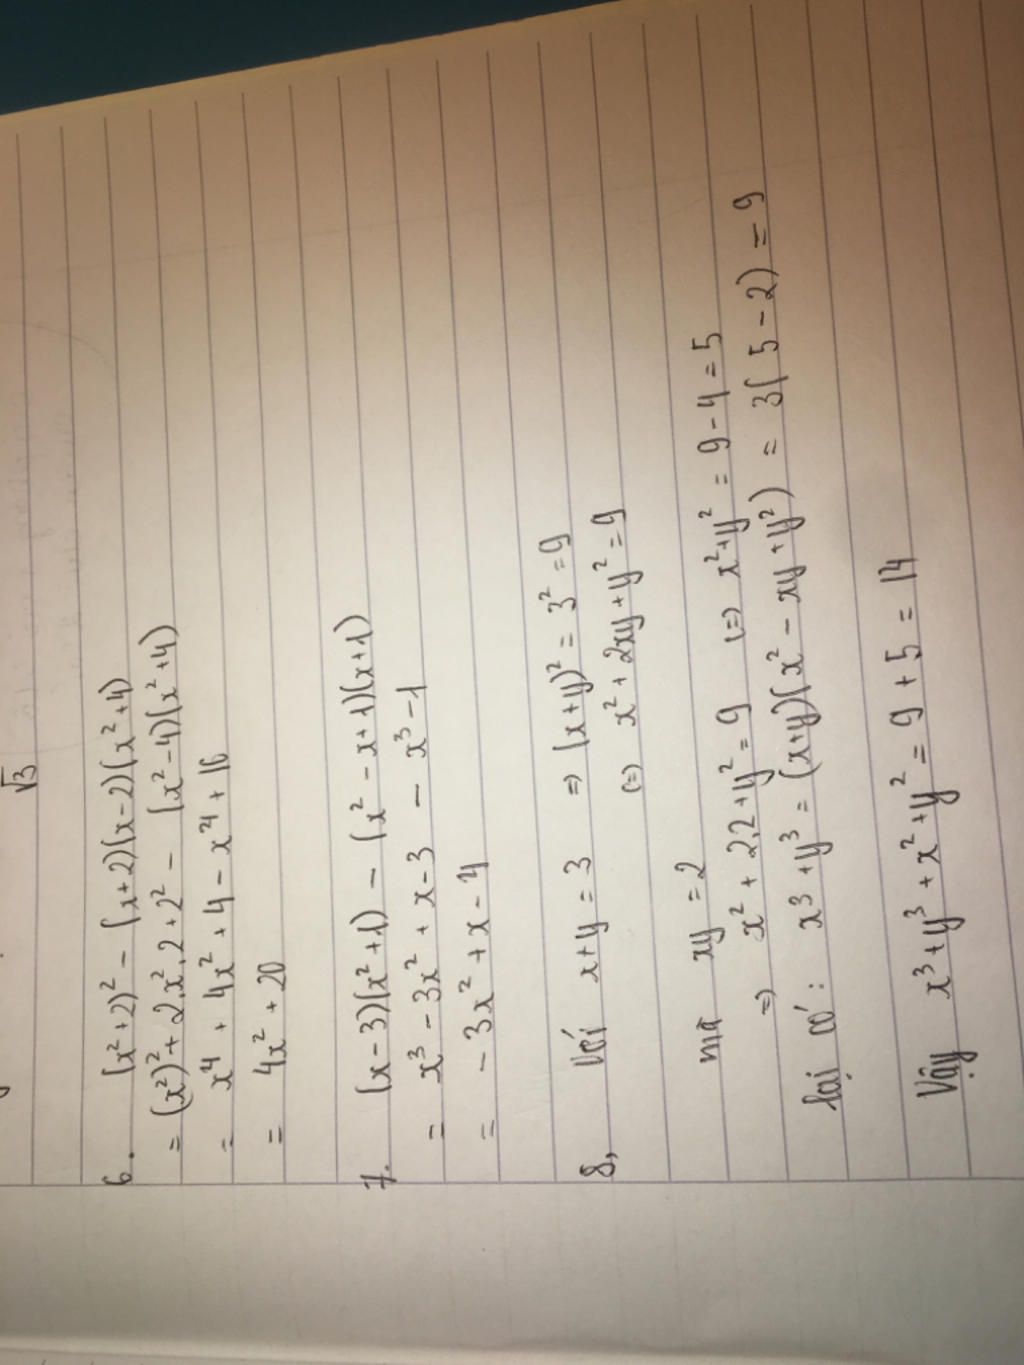 √3
6. (x² + 2)² - (x + 2)(x - 2)(x² + 4)
= (x²)² + 2.x².2 + 2² - (x² - 4)(x² + 4)
= x⁴ + 4x² + 4 - x⁴ + 16
= 4x² + 20
7. (x - 3)(x² + 1) - (x² - x + 1)(x + 1)
= x³ - 3x² + x - 3 - x³ - 1
= - 3x² + x - 4
8, Với x + y = 3 => (x + y)² = 3² = 9
(=) x² + 2xy + y² = 9
mà xy = 2
=> x² + 2.2 + y² = 9 (=) x² + y² = 9 - 4 = 5
lại có: x³ + y³ = (x + y)(x² - xy + y²) = 3(5 - 2) = 9
Vậy x³ + y³ + x² + y² = 9 + 5 = 14